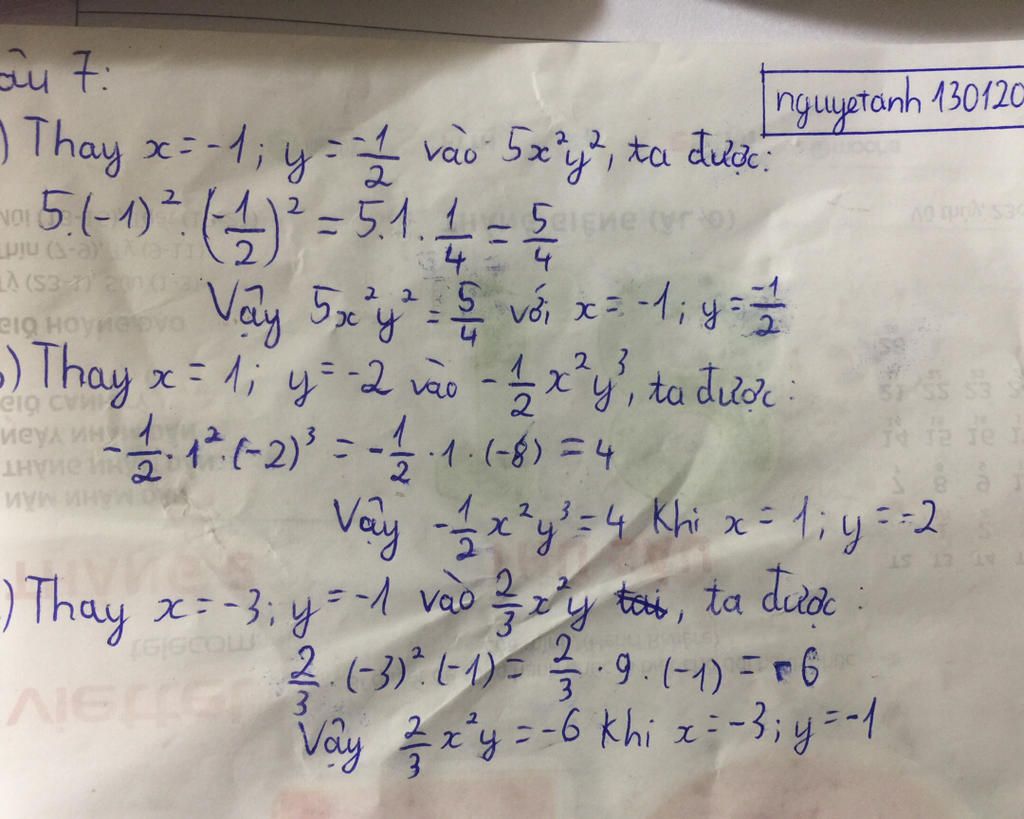 âu 7:
nguyetanh 130120
) Thay x = -1; y = -1/2 vào 5x²y², ta được:
5.(-1)².(-1/2)² = 5.1.1/4 = 5/4
Vậy 5x²y² = 5/4 với x = -1; y = -1/2
) Thay x = 1; y = -2 vào -1/2x²y³, ta được:
-1/2.1².(-2)³ = -1/2.1.(-8) = 4
Vậy -1/2x²y³ = 4 khi x = 1; y = -2
) Thay x = -3; y = -1 vào 2/3x²y tại, ta được:
2/3.(-3)².(-1) = 2/3.9.(-1) = -6
Vậy 2/3x²y = -6 khi x = -3; y = -1
viettel
telecom